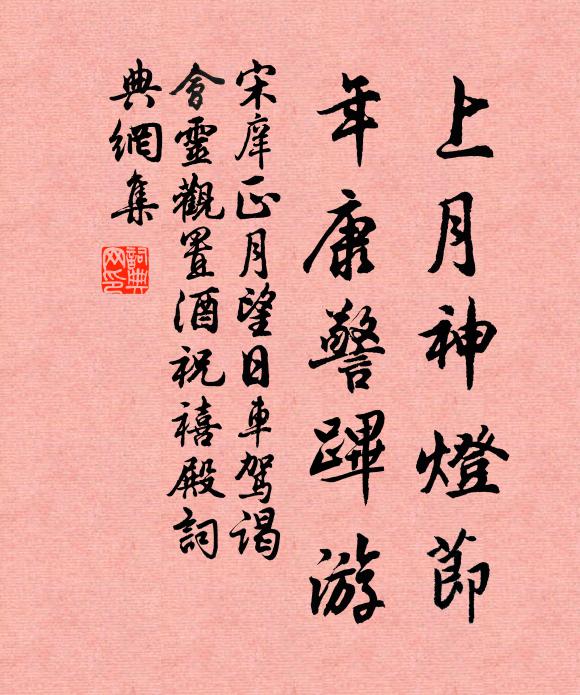 上月神燈節
年康警蹕游
宋庠正月望日車駕谒
會靈觀置酒祝禧殿詞
典網集
詞典
网印